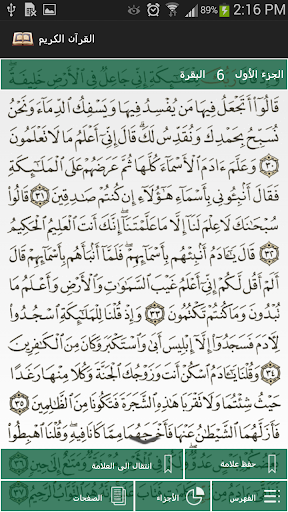 89% 2:16 PM
القرآن الكريم
الجزء الأول 6 البقرة
إِنِّي جَاعِلٌ فِي ٱلْأَرْضِ خَلِيفَةً
قَالُوٓا۟ أَتَجْعَلُ فِيهَا مَن يُفْسِدُ فِيهَا وَيَسْفِكُ ٱلدِّمَآءَ وَنَحْنُ
نُسَبِّحُ بِحَمْدِكَ وَنُقَدِّسُ لَكَ ۖ قَالَ إِنِّيٓ أَعْلَمُ مَا لَا تَعْلَمُونَ
٣٠ وَعَلَّمَ ءَادَمَ ٱلْأَسْمَآءَ كُلَّهَا ثُمَّ عَرَضَهُمْ عَلَى ٱلْمَلَٰٓئِكَةِ
فَقَالَ أَنۢبِـُٔونِي بِأَسْمَآءِ هَٰٓؤُلَآءِ إِن كُنتُمْ صَٰدِقِينَ ٣١ قَالُوا۟
سُبْحَٰنَكَ لَا عِلْمَ لَنَآ إِلَّا مَا عَلَّمْتَنَآ ۖ إِنَّكَ أَنتَ ٱلْعَلِيمُ ٱلْحَكِيمُ
٣٢ قَالَ يَٰٓـَٔادَمُ أَنۢبِئْهُم بِأَسْمَآئِهِمْ ۖ فَلَمَّآ أَنۢبَأَهُم بِأَسْمَآئِهِمْ قَالَ
أَلَمْ أَقُل لَّكُمْ إِنِّيٓ أَعْلَمُ غَيْبَ ٱلسَّمَٰوَٰتِ وَٱلْأَرْضِ وَأَعْلَمُ مَا
تُبْدُونَ وَمَا كُنتُمْ تَكْتُمُونَ ٣٣ وَإِذْ قُلْنَا لِلْمَلَٰٓئِكَةِ ٱسْجُدُوا۟
لِـَٔادَمَ فَسَجَدُوٓا۟ إِلَّآ إِبْلِيسَ أَبَىٰ وَٱسْتَكْبَرَ وَكَانَ مِنَ ٱلْكَٰفِرِينَ
٣٤ وَقُلْنَا يَٰٓـَٔادَمُ ٱسْكُنْ أَنتَ وَزَوْجُكَ ٱلْجَنَّةَ وَكُلَا مِنْهَا رَغَدًا
حَيْثُ شِئْتُمَا وَلَا تَقْرَبَا هَٰذِهِ ٱلشَّجَرَةَ فَتَكُونَا مِنَ ٱلظَّٰلِمِينَ ٣٥
فَأَزَلَّهُمَا ٱلشَّيْطَٰنُ عَنْهَا فَأَخْرَجَهُمَا مِمَّا كَانَا فِيهِ ۖ وَقُلْنَا ٱهْبِطُوا۟
حفظ علامة انتقال الى العلامة
الفهرس الأجزاء الصفحات